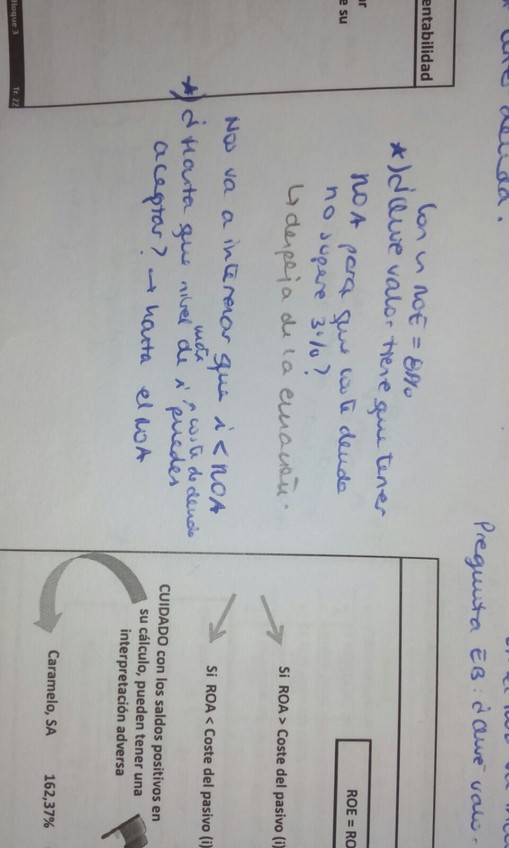 entabilidad
e su
Bloque 3 Tr. 22
custe deuda.
Con un ROE = 8%
*) ¿Qué valor tiene que tener
ROA para que coste deuda
no supere 3%?
↳ despeja de la ecuación.
Nos va a interesar que i < ROA
*) ¿Hasta que nivel de i puedes
coste de deuda
aceptar? → hasta el ROA
Pregunta EB: ¿Qué valor
ROE = RO
Si ROA > Coste del pasivo (i)
Si ROA < Coste del pasivo (i)
CUIDADO con los saldos positivos en
su cálculo, pueden tener una
interpretación adversa
Caramelo, SA 162,37%